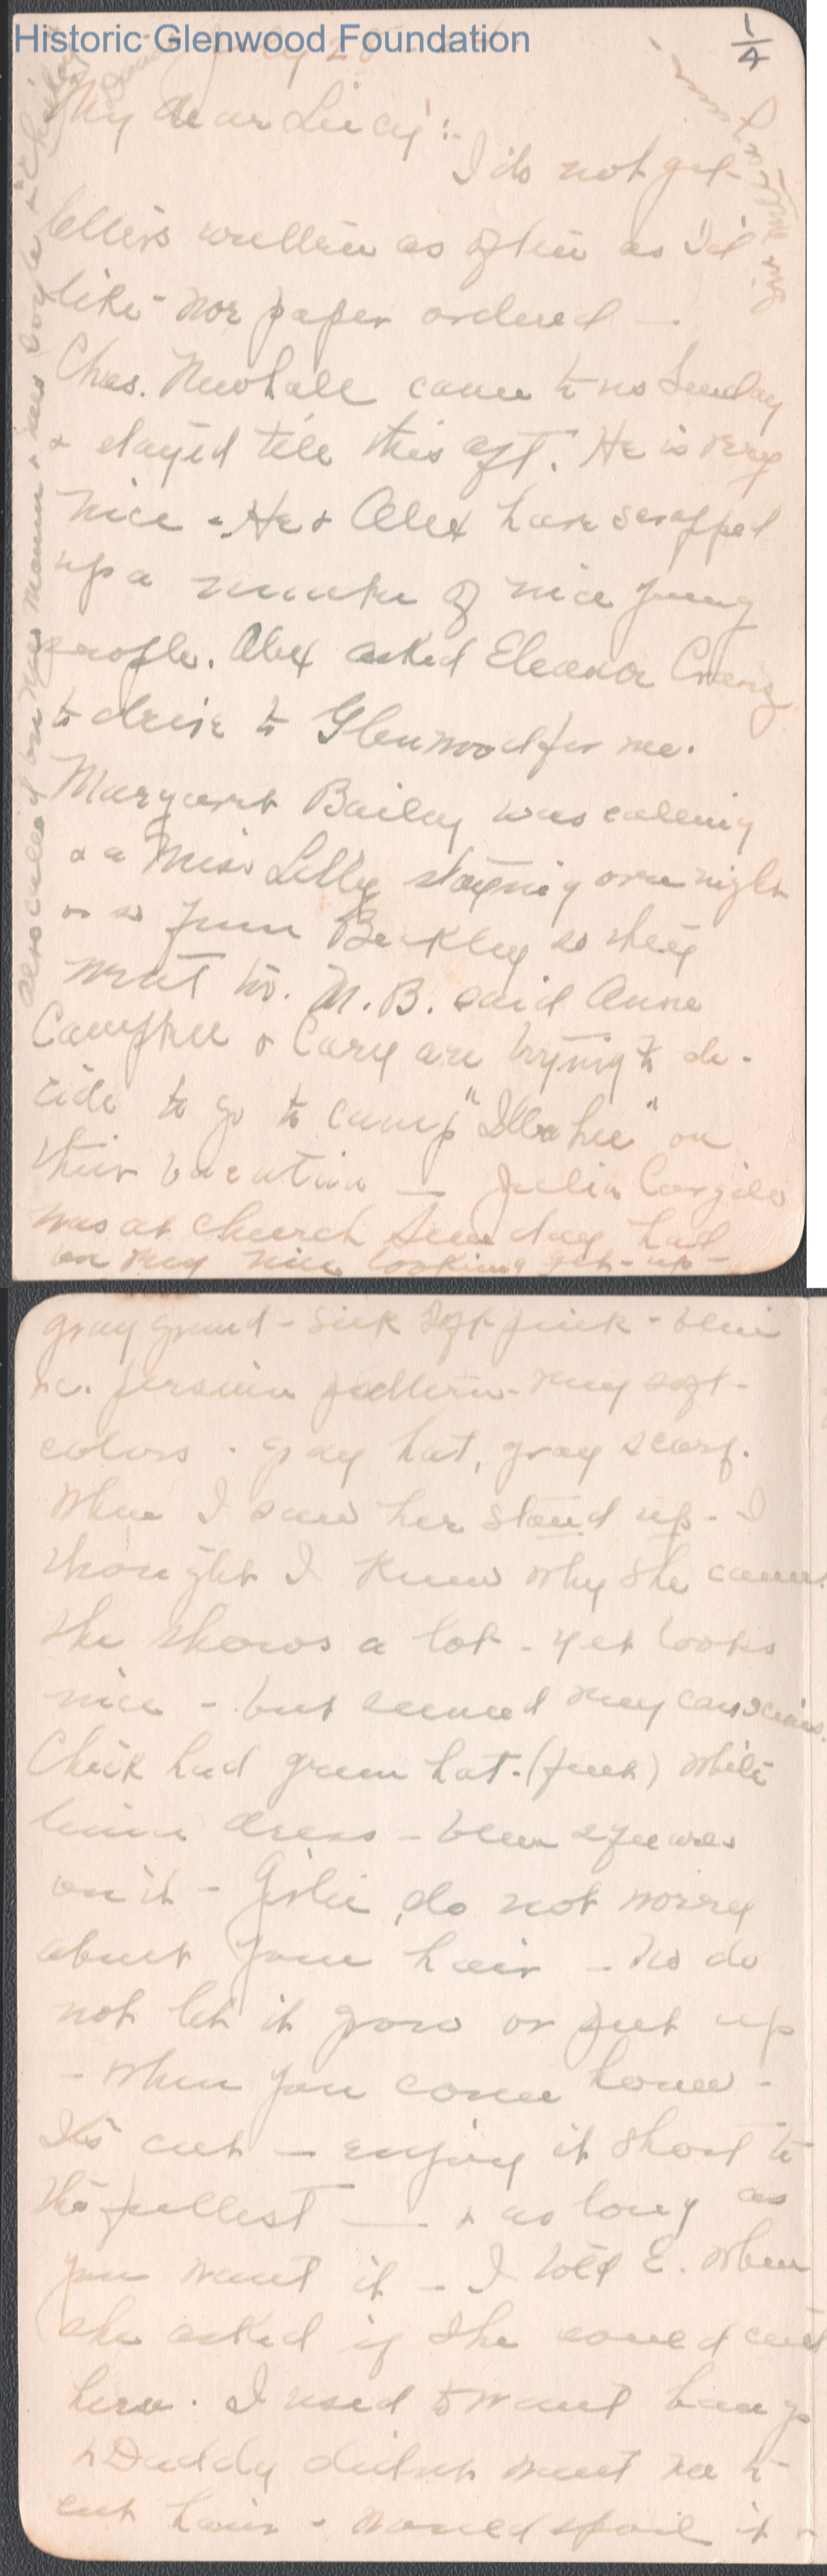 Historic Glenwood Foundation
1/4
July 20
My dear Lucy:-
I do not get
letters written as often as I'd
like - nor paper ordered -.
Chas. Newhall came to us Sunday
& stayed till this aft. He is very
nice - He & Alex have scrapped
up a number of nice young
people. Alex asked Eleanor
to drive to Glenwood for me.
Margaret Bailey was calling
& a Miss Lilly staying over night
or so June Beckley so they
went too. M. B. said Anne
Campbell & Cary are trying to de-
cide to go to camp "Illahee" on
their vacation - Julia
was at church Sunday had
on very nice looking get-up -
gray ground - silk soft pink - blue
&c. persian pattern - very soft -
colors - gray hat, gray scarf.
When I saw her stand up - I
thought I knew why she came.
She shows a lot - yet looks
nice - but seemed very conscious.
Chick had green hat - (felt) white
linen dress - blue squares
on it - Girlie, do not worry
about your hair - No do
not let it grow or put up
- when you come home -
It's cut - enjoy it short to
the fullest - & as long as
you want it - I told E. when
she asked if she could cut
hers. I used to want bangs
& Daddy didn't want me to
cut hair - would spoil it &
also called on